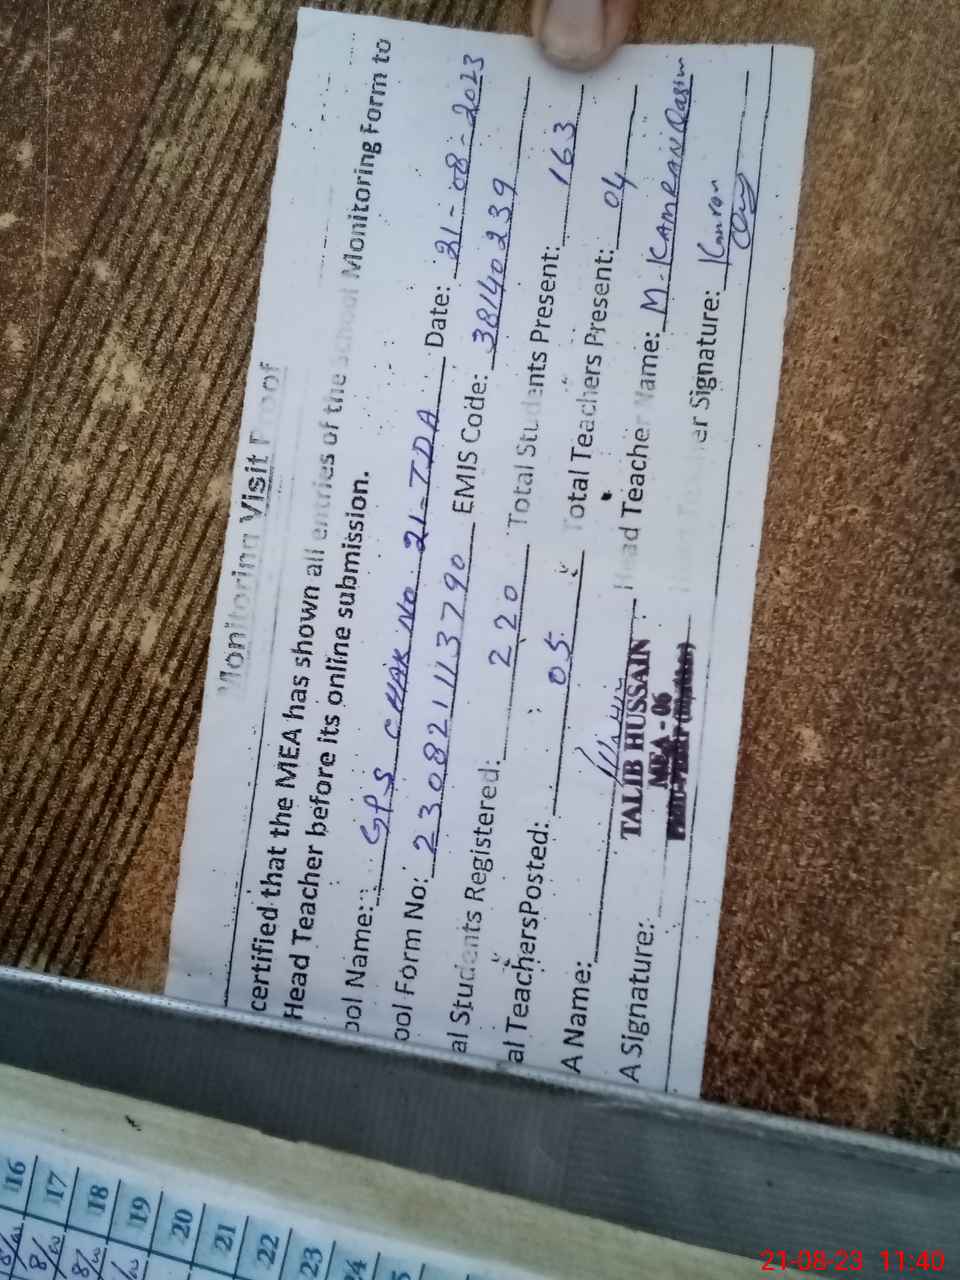 Monitoring Visit Proof
certified that the MEA has shown all entries of the School Monitoring Form to
Head Teacher before its online submission.
ool Name: GPS CHAK NO 21-TDA Date: 21-08-2023
ool Form No: 230821113790 EMIS Code: 38140239
al Students Registered: 220 Total Students Present: 163
al TeachersPosted: 05 Total Teachers Present: 04
A Name: Head Teacher Name: M-KAMRAN Qasim
TALIB HUSSAIN
MEA - 06
A Signature: er Signature: Kamran
16
17
18
19
20
21
22
23
24
21-08-23 11:40